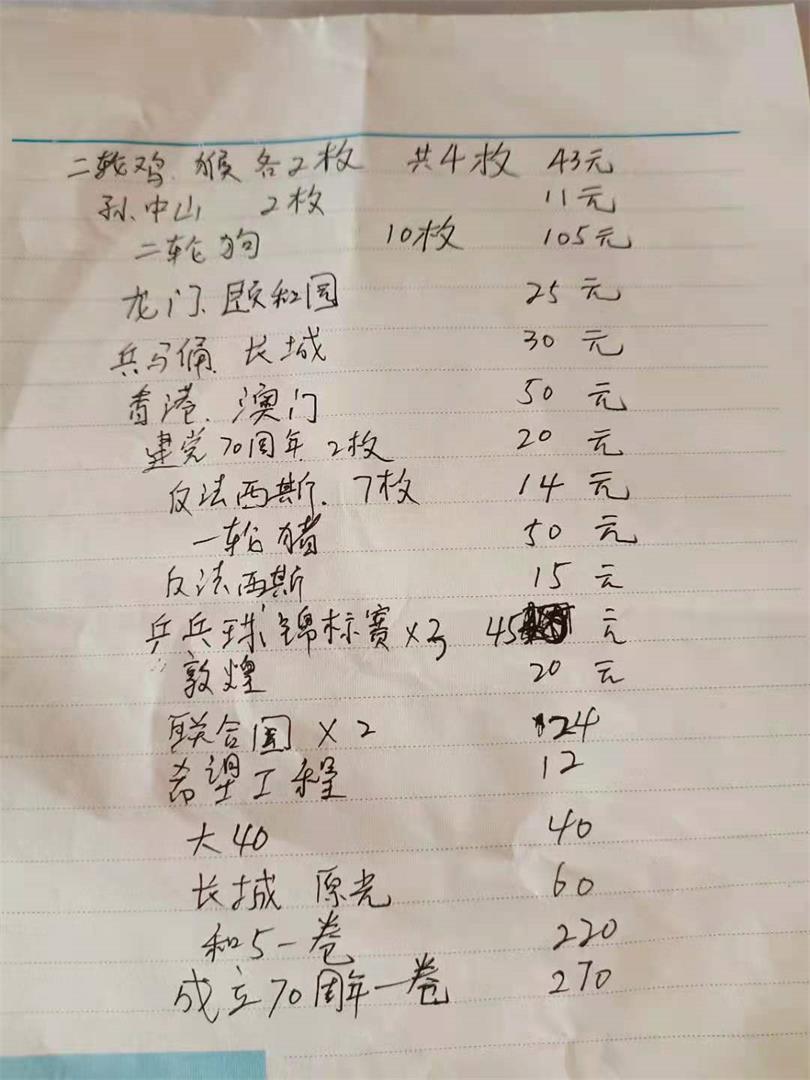 二轮鸡.猴各2枚 共4枚 43元
孙中山 2枚 11元
二轮狗 10枚 105元
龙门.颐和园 25元
兵马俑.长城 30元
香港.澳门 50元
建党70周年.2枚 20元
反法西斯.7枚 14元
一轮猪 50元
反法西斯 15元
乒乓球锦标赛×3 45元
敦煌 20元
联合国×2 24
希望工程 12
大40 40
长城 原光 60
和5一卷 220
成立70周年一卷 270